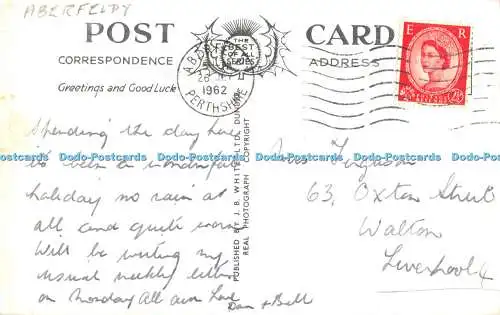 ABERFELDY
POST CARD
THE
BEST
OF ALL
SERIES
CORRESPONDENCE
ADDRESS
Greetings and Good Luck
1962
PERTHSHIRE
E R
2½D
PUBLISHED BY J. B. WHITE LTD., DUNDEE
REAL PHOTOGRAPH COPYRIGHT
Spending the day here
its been a wonderful
holiday no rain at
all and quite warm
Will be writing my
usual weekly letter
on Monday All our Love
Dan + Bell
Ferguson
63, Oxton Street
Walton
Liverpool 4
Dodo-Postcards Dodo-Postcards Dodo-Postcards Dodo-Postcards Dodo-Postcards Dodo-Postcards